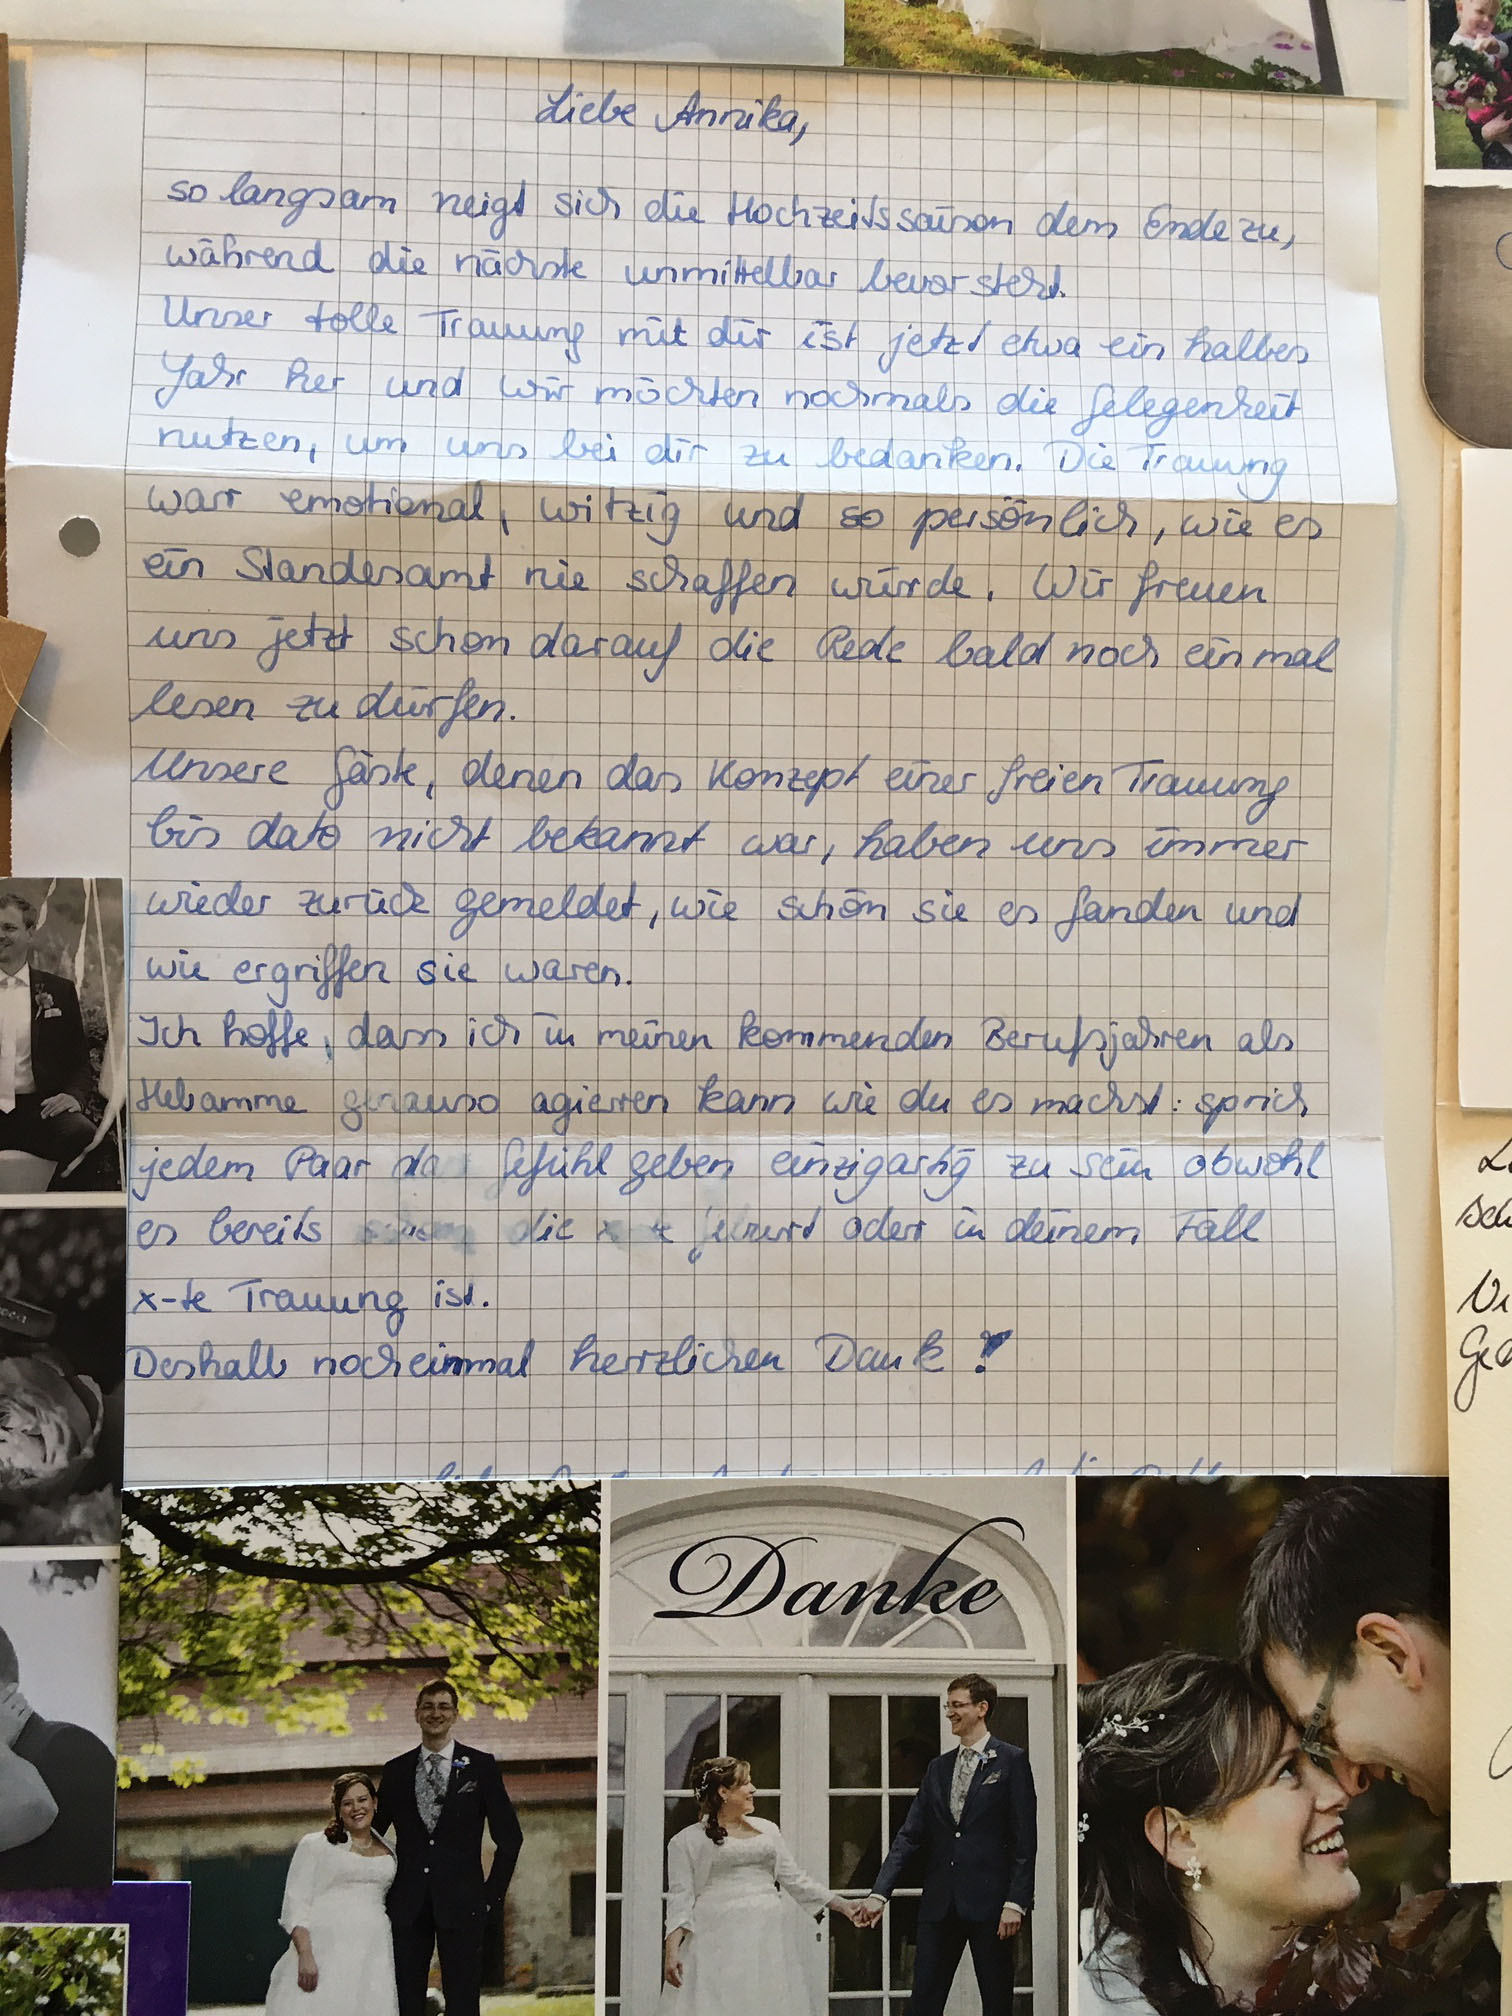 Liebe Annika,
so langsam neigt sich die Hochzeitssaison dem Ende zu,
während die nächste unmittelbar bevorsteht.
Unser tolle Trauung mit dir ist jetzt etwa ein halbes
Jahr her und wir möchten nochmals die Gelegenheit
nutzen, um uns bei dir zu bedanken. Die Trauung
war emotional, witzig und so persönlich, wie es
ein Standesamt nie schaffen würde. Wir freuen
uns jetzt schon darauf die Rede bald noch einmal
lesen zu dürfen.
Unsere Gäste, denen das Konzept einer freien Trauung
bis dato nicht bekannt war, haben uns immer
wieder zurück gemeldet, wie schön sie es fanden und
wie ergriffen sie waren.
Ich hoffe, dass ich in meinen kommenden Berufsjahren als
Hebamme genauso agieren kann wie du es machst: sprich
jedem Paar das Gefühl geben einzigartig zu sein obwohl
es bereits schon die x-te Geburt oder in deinem Fall
x-te Trauung ist.
Deshalb nocheinmal herzlichen Dank!
Danke